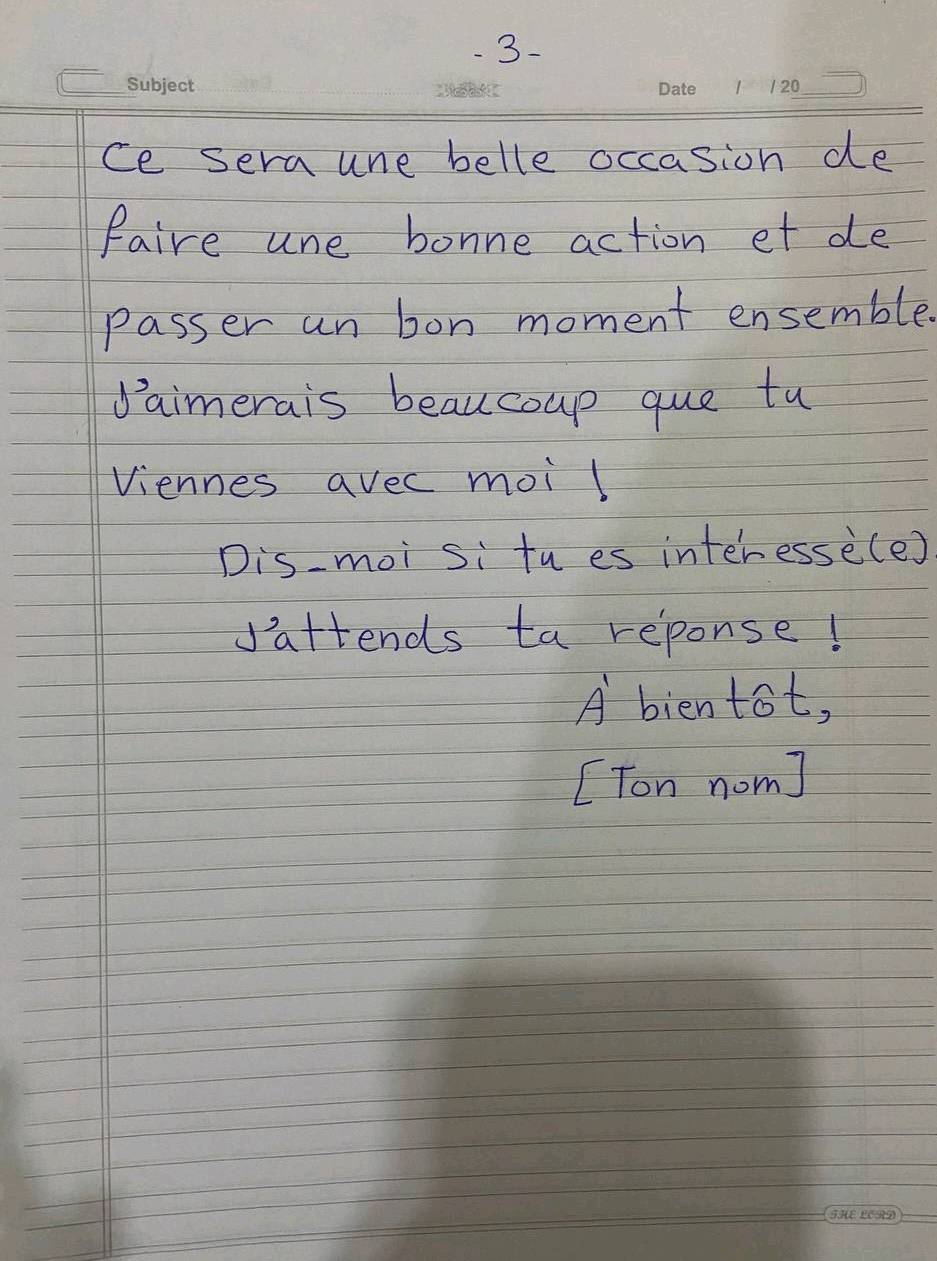 - 3 -
Subject
Date / / 20
Ce sera une belle occasion de
faire une bonne action et de
passer un bon moment ensemble.
J'aimerais beaucoup que tu
Viennes avec moi !
Dis-moi si tu es intéressè(e).
J'attends ta réponse !
À bientôt,
[Ton nom]
THE LORD